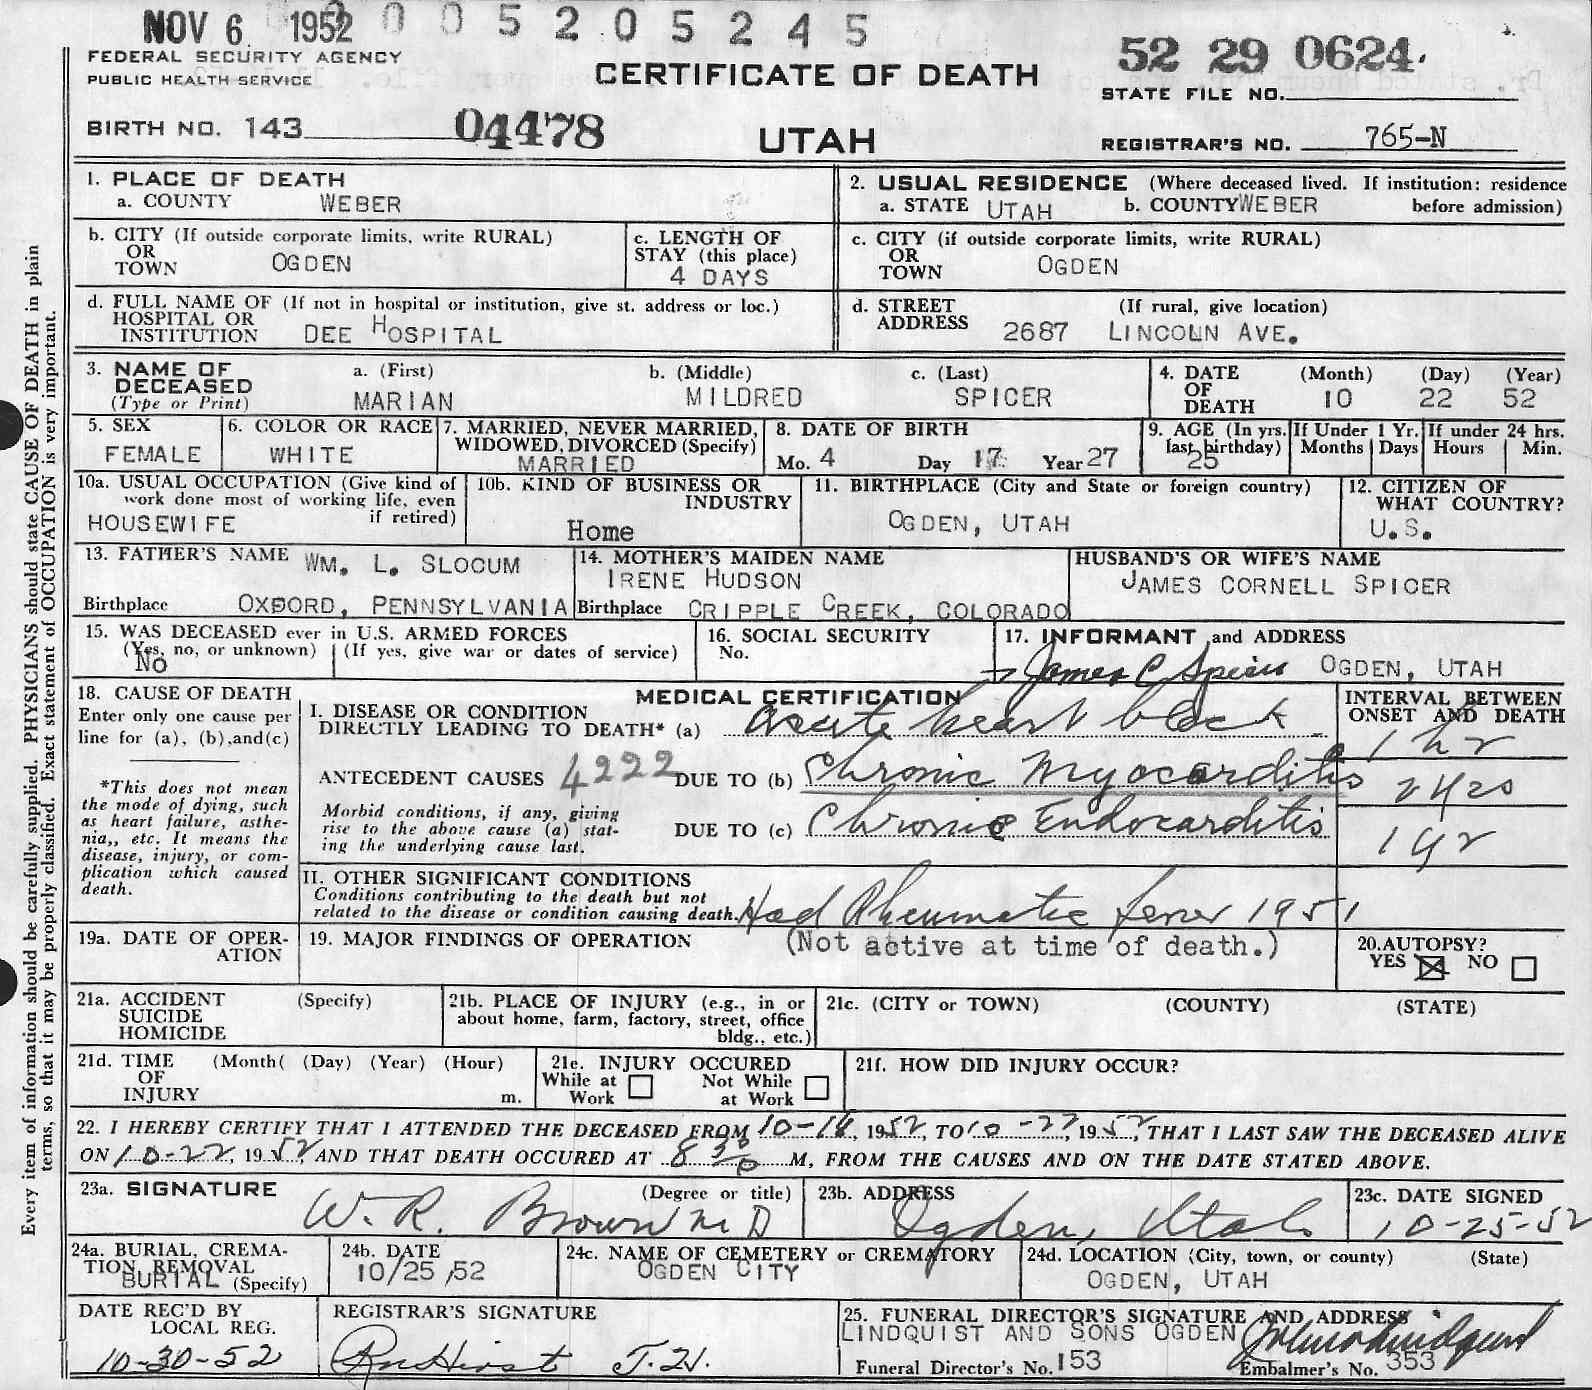 NOV 6 1952 0 0 5 2 0 5 2 4 5
FEDERAL SECURITY AGENCY
PUBLIC HEALTH SERVICE
CERTIFICATE OF DEATH
52 29 0624.
STATE FILE NO.
BIRTH NO. 143 04478
UTAH
REGISTRAR'S NO. 765-N
1. PLACE OF DEATH
a. COUNTY WEBER
2. USUAL RESIDENCE (Where deceased lived. If institution: residence
a. STATE UTAH b. COUNTY WEBER before admission)
b. CITY (If outside corporate limits, write RURAL)
OR
TOWN OGDEN
c. LENGTH OF
STAY (this place)
4 DAYS
c. CITY (if outside corporate limits, write RURAL)
OR
TOWN OGDEN
d. FULL NAME OF (If not in hospital or institution, give st. address or loc.)
HOSPITAL OR
INSTITUTION DEE HOSPITAL
d. STREET (If rural, give location)
ADDRESS 2687 LINCOLN AVE.
3. NAME OF a. (First) b. (Middle) c. (Last)
DECEASED
(Type or Print) MARIAN MILDRED SPICER
4. DATE (Month) (Day) (Year)
OF
DEATH 10 22 52
5. SEX
FEMALE
6. COLOR OR RACE
WHITE
7. MARRIED, NEVER MARRIED,
WIDOWED, DIVORCED (Specify)
MARRIED
8. DATE OF BIRTH
Mo. 4 Day 17 Year 27
9. AGE (In yrs.
last birthday)
25
If Under 1 Yr.
Months Days
If under 24 hrs.
Hours Min.
10a. USUAL OCCUPATION (Give kind of
work done most of working life, even
if retired)
HOUSEWIFE
10b. KIND OF BUSINESS OR
INDUSTRY
Home
11. BIRTHPLACE (City and State or foreign country)
OGDEN, UTAH
12. CITIZEN OF
WHAT COUNTRY?
U.S.
13. FATHER'S NAME WM. L. SLOCUM
Birthplace OXBORD, PENNSYLVANIA
14. MOTHER'S MAIDEN NAME
IRENE HUDSON
Birthplace CRIPPLE CREEK, COLORADO
HUSBAND'S OR WIFE'S NAME
JAMES CORNELL SPICER
15. WAS DECEASED ever in U.S. ARMED FORCES
(Yes, no, or unknown) (If yes, give war or dates of service)
NO
16. SOCIAL SECURITY
No.
17. INFORMANT and ADDRESS
James C Spicer OGDEN, UTAH
18. CAUSE OF DEATH
Enter only one cause per
line for (a), (b), and(c)
*This does not mean
the mode of dying, such
as heart failure, asthe-
nia,, etc. It means the
disease, injury, or com-
plication which caused
death.
MEDICAL CERTIFICATION
I. DISEASE OR CONDITION
DIRECTLY LEADING TO DEATH* (a) acute heart block
ANTECEDENT CAUSES 4222 DUE TO (b) Chronic Myocarditis
Morbid conditions, if any, giving
rise to the above cause (a) stat-
ing the underlying cause last.
DUE TO (c) Chronic Endocarditis
INTERVAL BETWEEN
ONSET AND DEATH
1 hr
1 yr
II. OTHER SIGNIFICANT CONDITIONS
Conditions contributing to the death but not
related to the disease or condition causing death. Had Rheumatic fever 1951
(Not active at time of death.)
19a. DATE OF OPER-
ATION
19. MAJOR FINDINGS OF OPERATION
20. AUTOPSY?
YES NO
21a. ACCIDENT (Specify)
SUICIDE
HOMICIDE
21b. PLACE OF INJURY (e.g., in or
about home, farm, factory, street, office
bldg., etc.)
21c. (CITY or TOWN) (COUNTY) (STATE)
21d. TIME (Month( (Day) (Year) (Hour)
OF
INJURY m.
21e. INJURY OCCURED
While at Work Not While at Work
21f. HOW DID INJURY OCCUR?
22. I HEREBY CERTIFY THAT I ATTENDED THE DECEASED FROM 10-16, 1952, TO 10-22, 1952, THAT I LAST SAW THE DECEASED ALIVE
ON 10-22, 1952, AND THAT DEATH OCCURED AT 8 30 p M, FROM THE CAUSES AND ON THE DATE STATED ABOVE.
23a. SIGNATURE (Degree or title)
W. R. Brown M D
23b. ADDRESS
Ogden, Utah
23c. DATE SIGNED
10-25-52
24a. BURIAL, CREMA-
TION, REMOVAL
BURIAL (Specify)
24b. DATE
10/25,52
24c. NAME OF CEMETERY or CREMATORY
OGDEN CITY
24d. LOCATION (City, town, or county) (State)
OGDEN, UTAH
DATE REC'D BY
LOCAL REG.
10-30-52
REGISTRAR'S SIGNATURE
25. FUNERAL DIRECTOR'S SIGNATURE AND ADDRESS
LINDQUIST AND SONS OGDEN
Funeral Director's No. 153 Embalmer's No. 353
Every item of information should be carefully supplied. PHYSICIANS should state CAUSE OF DEATH in plain
terms, so that it may be properly classified. Exact statement of OCCUPATION is very important.